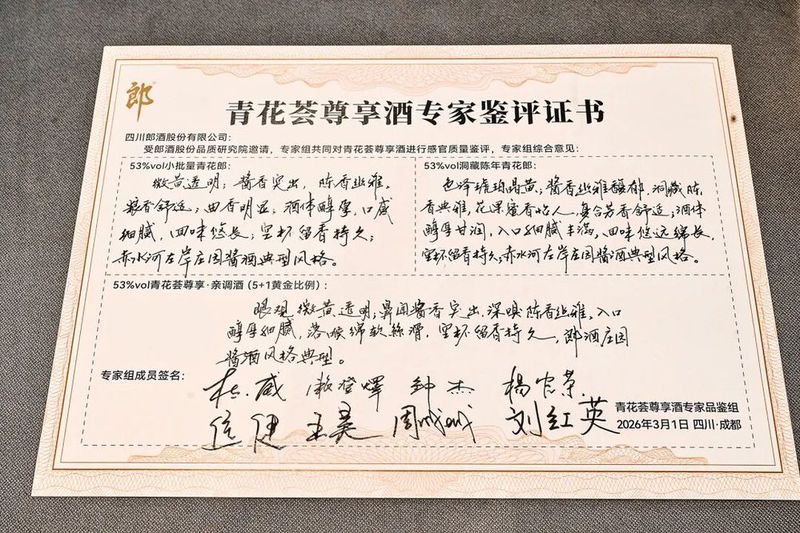 郎
青花荟尊享酒专家鉴评证书
四川郎酒股份有限公司：
受郎酒股份品质研究院邀请，专家组共同对青花荟尊享酒进行感官质量鉴评，专家组综合意见：
53%vol小批量青花郎：
微黄透明；酱香突出，陈香幽雅，
粮香舒适；曲香明显；酒体醇厚，口感
细腻，回味悠长；空杯留香持久；
赤水河左岸庄园酱酒典型风格。
53%vol洞藏陈年青花郎：
色泽琥珀晶黄；酱香幽雅馥郁，洞藏陈
香典雅，花果蜜香怡人，复合芳香舒适；酒体
醇厚甘润，入口细腻丰满，回味悠远绵长，
空杯留香持久；赤水河左岸庄园酱酒典型风格。
53%vol青花荟尊享·亲调酒（5+1黄金比例）：
眼观微黄透明；鼻闻酱香突出，深嗅陈香幽雅，入口
醇厚细腻，落喉绵软丝滑，空杯留香持久，郎酒庄园
酱酒风格典型。
专家组成员签名：
杜威 钟杰 杨官荣
王昊 周成城 刘红英
青花荟尊享酒专家品鉴组
2026年3月1日 四川·成都